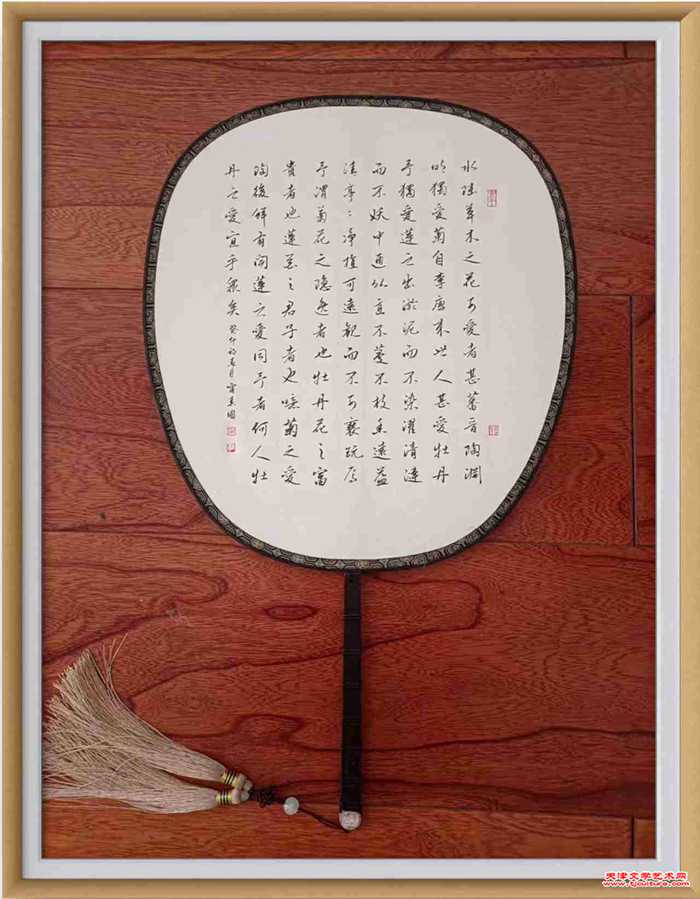 水陸草木之花可愛者甚蕃晉陶淵
明獨愛菊自李唐來世人甚愛牡丹
予獨愛蓮之出淤泥而不染濯清漣
而不妖中通外直不蔓不枝香遠益
清亭〻淨植可遠觀而不可褻玩焉
予謂菊花之隱逸者也牡丹花之富
貴者也蓮花之君子者也噫菊之愛
陶後鮮有聞蓮之愛同予者何人牡
丹之愛宜乎眾矣 癸卯初春月
天津文学艺术网
www.tjculture.com